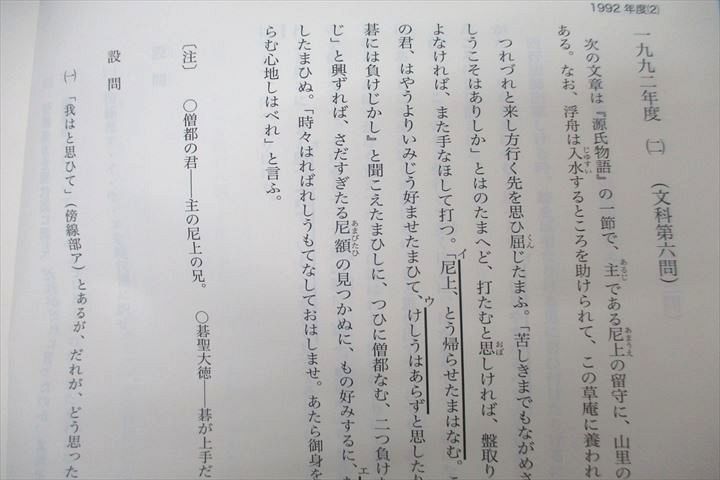 1992年度(2)
一九九二年度 (二) (文科第六問)
次の文章は『源氏物語』の一節で、主である尼上の留守に、山里の
ある。なお、浮舟は入水するところを助けられて、この草庵に養われ
つれづれと来し方行く先を思ひ屈じたまふ。「苦しきまでもながめさ
しうこそはありしか」とはのたまへど、打たむと思しければ、盤取り
よなければ、また手なほして打つ。「尼上、とう帰らせたまはなむ。こ
の君、はやうよりいみじう好ませたまひて、けしうはあらずと思したり
碁には負けじかし』と聞こえたまひしに、つひに僧都なむ、二つ負け
じ」と興ずれば、さだすぎたる尼額の見つかぬに、もの好みするに、
したまひぬ。「時々はればれしうもてなしておはしませ。あたら御身を
らむ心地しはべれ」と言ふ。
〔注〕 ○僧都の君――主の尼上の兄。 ○碁聖大徳――碁が上手だ
設問
(一) 「我はと思ひて」(傍線部ア)とあるが、だれが、どう思った